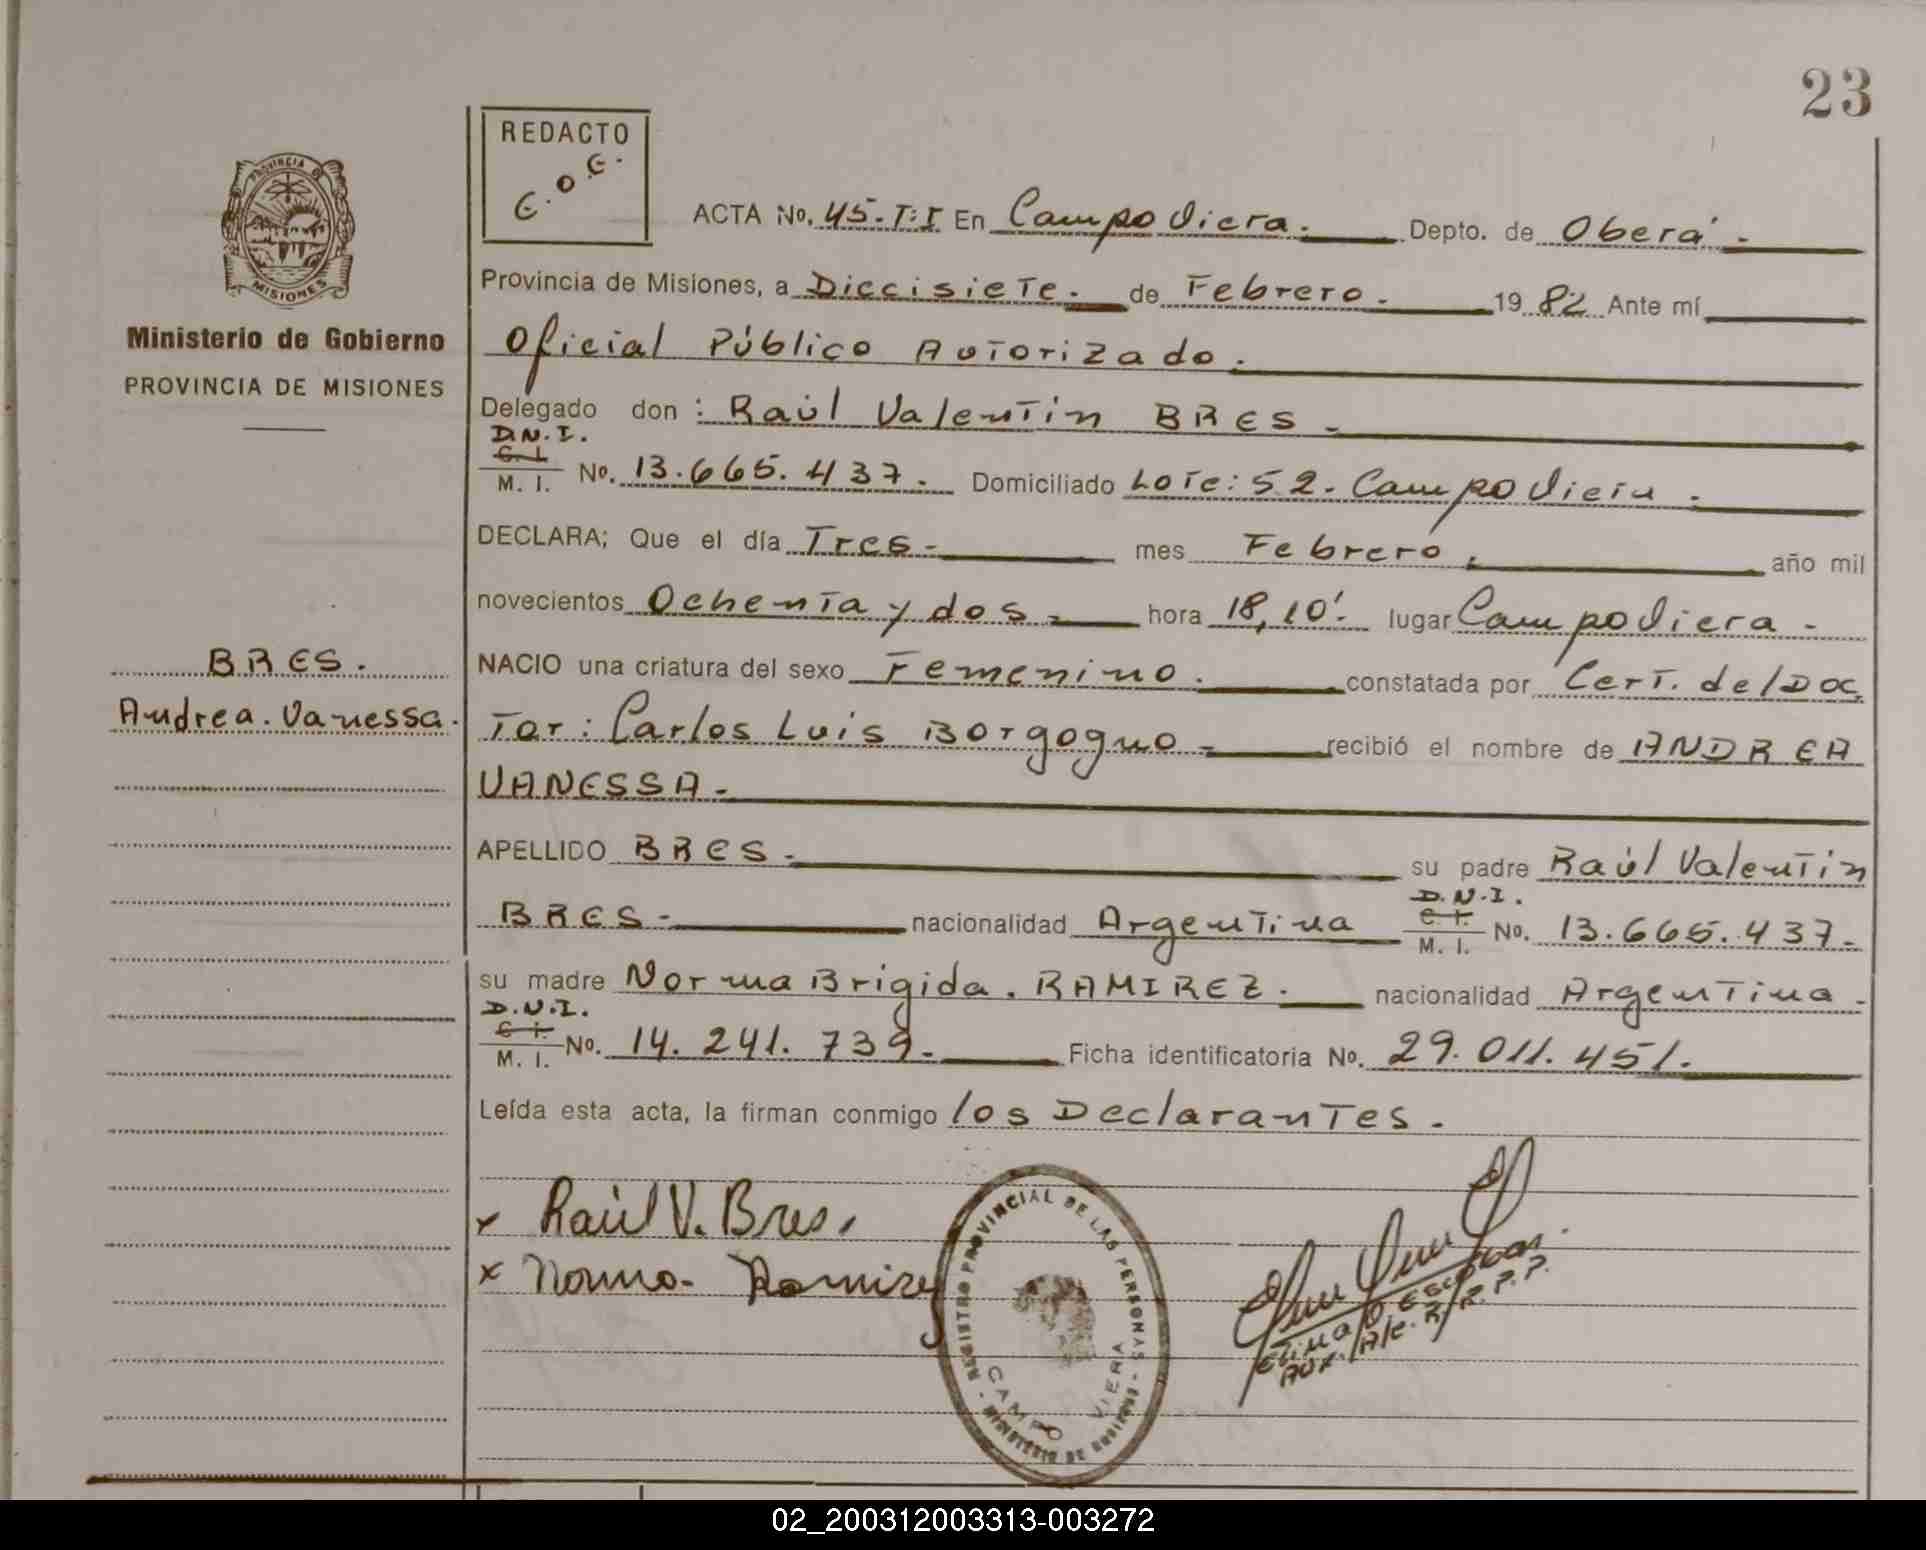 23
REDACTO
E.O.E.
PROVINCIA
MISIONES
Ministerio de Gobierno
PROVINCIA DE MISIONES
BRES.
Andrea.Vanessa.
ACTA No. 45.T:I En Campo Viera. Depto. de Oberá.
Provincia de Misiones, a Diecisiete. de Febrero. 19 82 Ante mí
Oficial Público Autorizado.
Delegado don : Raúl Valentin BRES.
D.N.I.
C. I.
M. I. No. 13.665.437. Domiciliado Lote: 52. Campo Viera.
DECLARA; Que el día Tres. mes Febrero. año mil
novecientos Ochenta y dos. hora 18,10'. lugar Campo Viera.
NACIO una criatura del sexo Femenino. constatada por Cert. del Doc
Tor: Carlos Luis Borgogno. recibió el nombre de ANDREA
VANESSA.
APELLIDO BRES. su padre Raúl Valentin
D.N.I.
BRES. nacionalidad Argentina C. I. M. I. No. 13.665.437.
su madre Norma Brigida. RAMIREZ. nacionalidad Argentina.
D.N.I.
C. I.
M. I. No. 14.241.739. Ficha identificatoria No. 29.011.451.
Leída esta acta, la firman conmigo los Declarantes.
x Raúl V. Bres.
x Norma Ramirez
REGISTRO PROVINCIAL DE LAS PERSONAS
CAMPO VIERA
MINISTERIO DE
R.P.P.
02_200312003313-003272